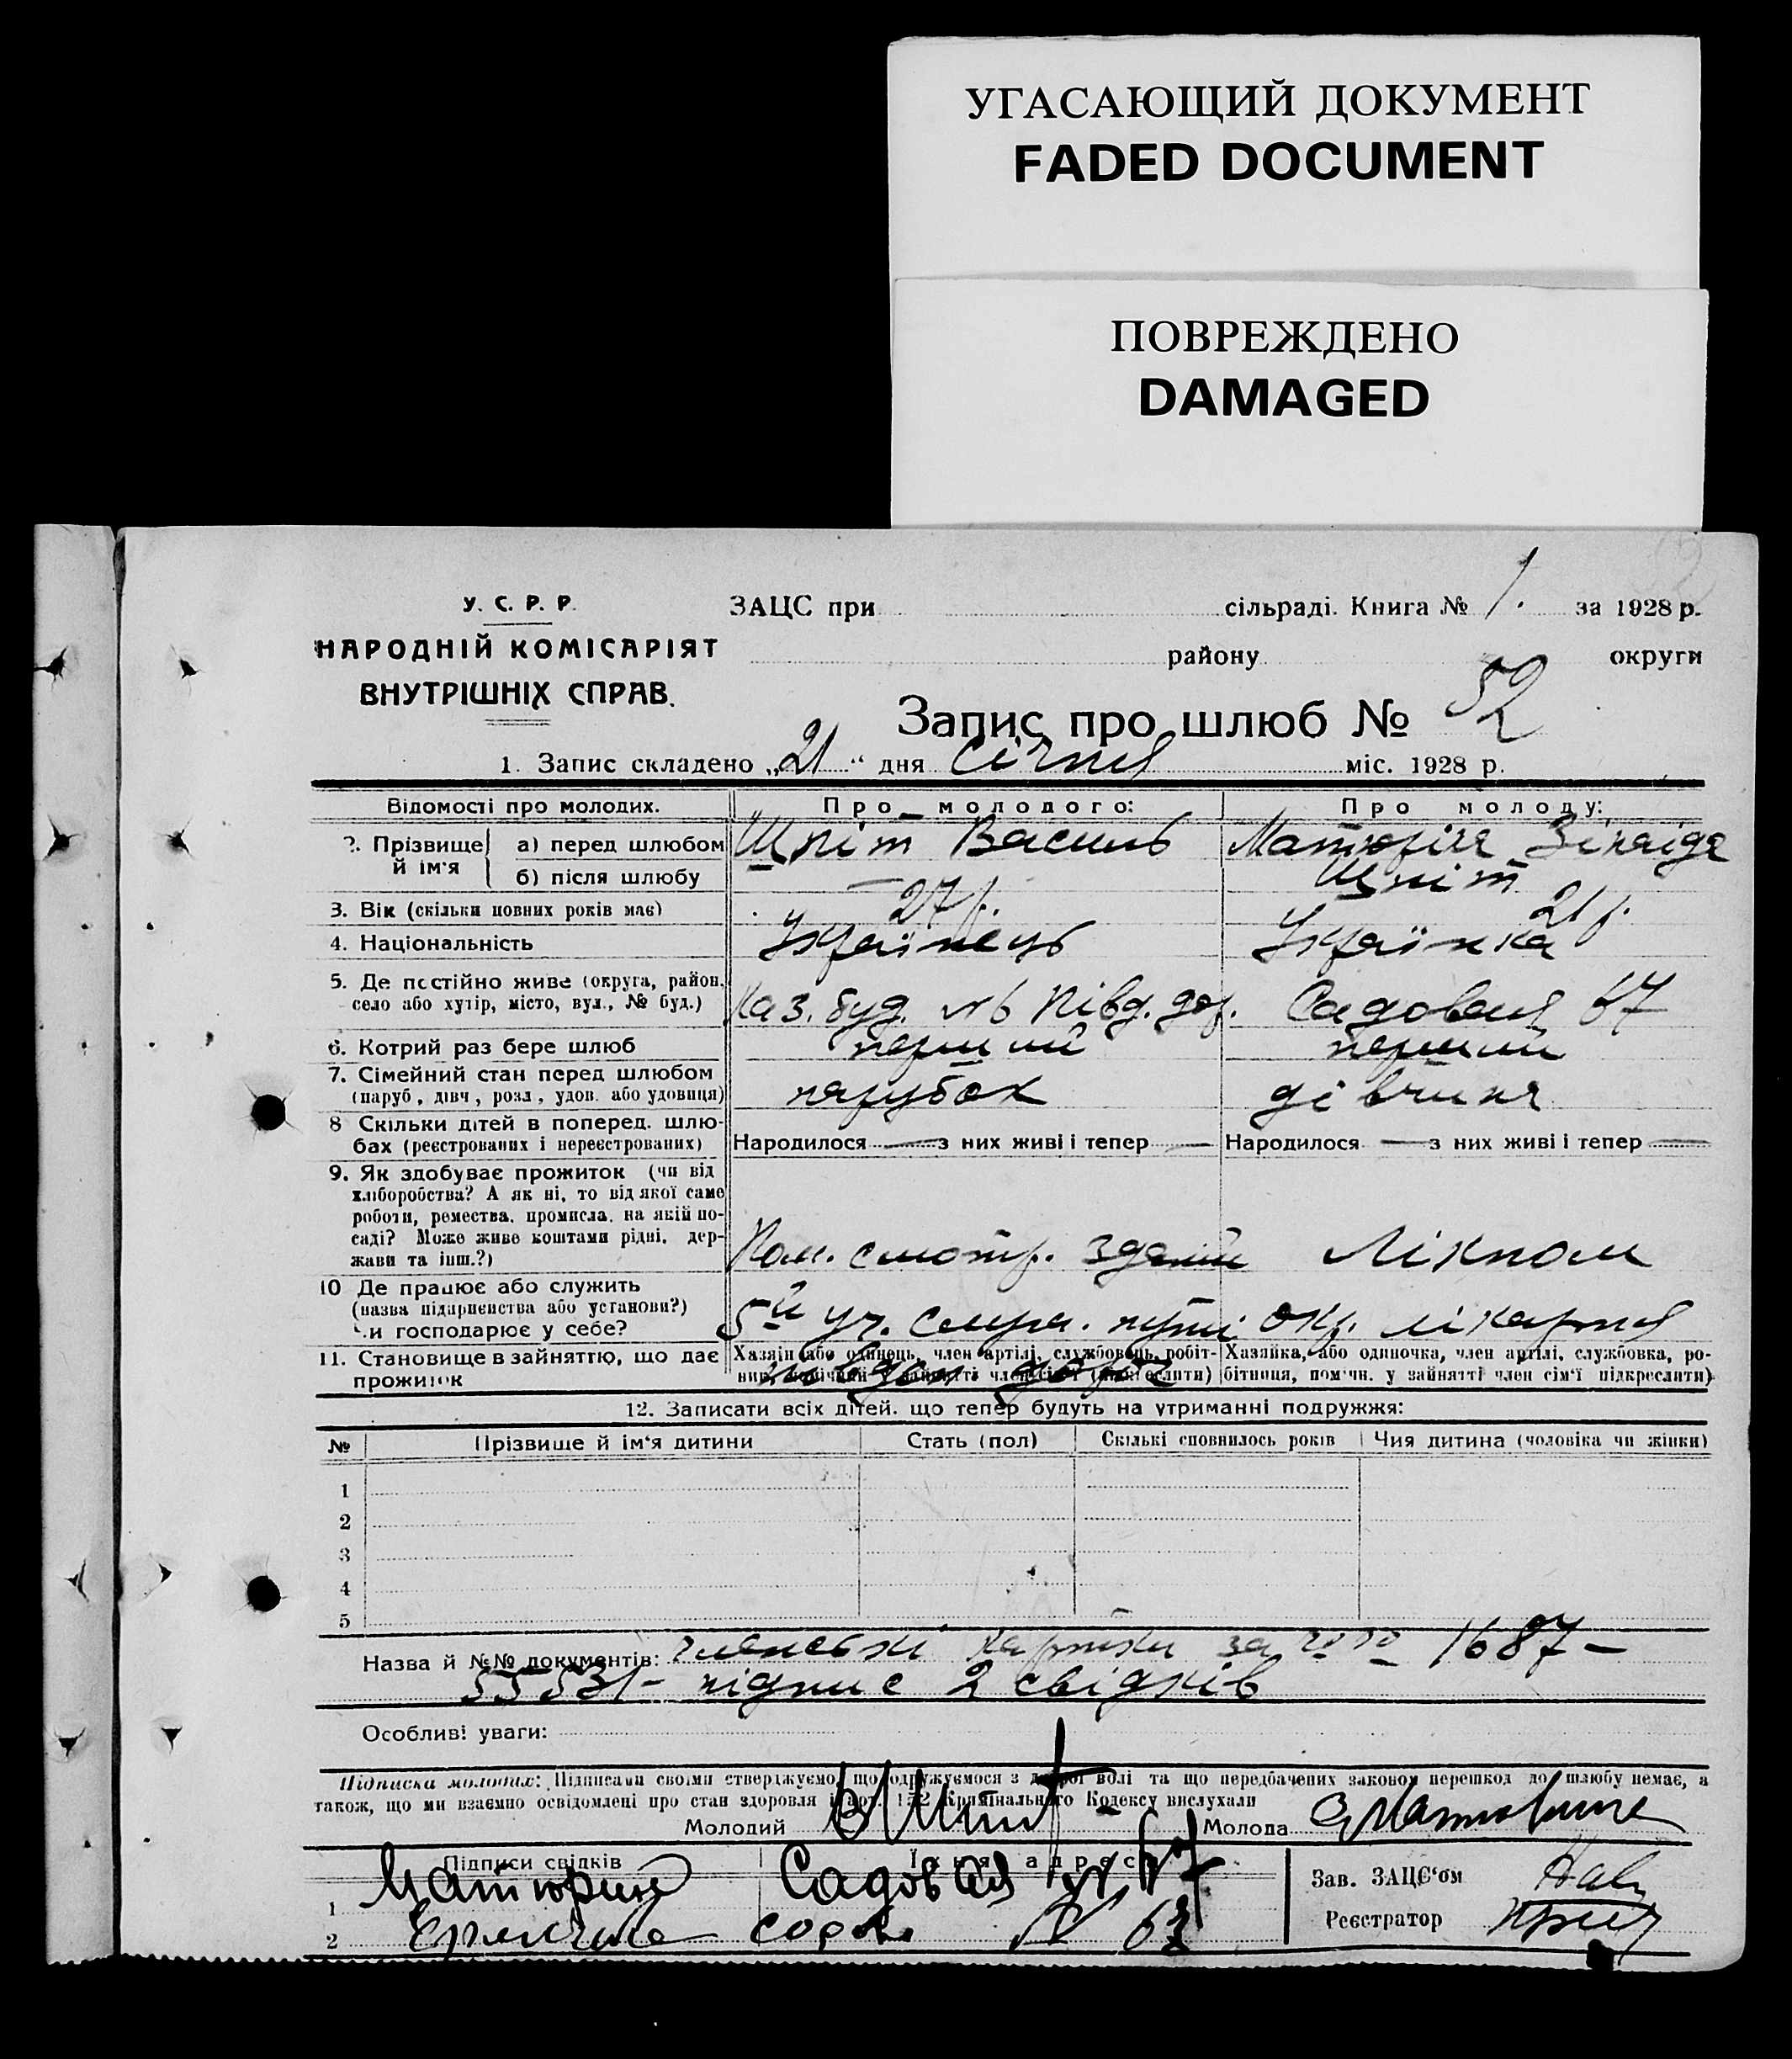 УГАСАЮЩИЙ ДОКУМЕНТ
FADED DOCUMENT
ПОВРЕЖДЕНО
DAMAGED
У. С. Р. Р.
НАРОДНІЙ КОМІСАРІЯТ
ВНУТРІШНІХ СПРАВ.
ЗАЦС при сільраді. Книга № 1. за 1928 р.
району округи
Запис про шлюб № 52
1. Запис складено „21“ дня січня міс. 1928 р.
Відомості про молодих. Про молодого: Про молоду:
2. Прізвище й ім'я
а) перед шлюбом Шпіт Василь Матюріна Зінаїда
б) після шлюбу — Шпіт
3. Вік (скільки повних років має) 27 р. 21 р.
4. Національність Українець Українка
5. Де постійно живе (округа, район, село або хутір, місто, вул., № буд.) Каз. буд. №6 Півд. дор. Садовая 67
6. Котрий раз бере шлюб перший перший
7. Сімейний стан перед шлюбом (паруб., дівч., розл., удов. або удовиця) парубок дівчина
8 Скільки дітей в поперед. шлюбах (реєстрованих і нереєстрованих) Народилося — з них живі і тепер — Народилося — з них живі і тепер —
9. Як здобуває прожиток (чи від хліборобства? А як ні, то від якої саме роботи, ремества, промисла, на якій посаді? Може живе коштами рідні, держави та інш.?) Пом. смотр. зданий Лікпом
10 Де працює або служить (назва підприємства або установи?) Чи господарює у себе? 5й уч. служ. путі Окр. лікарня
південн. дор.
11. Становище в зайняттю, що дає прожиток
Хазяїн або одинець, член артілі, службовець, робітник, помічний у зайнятті член сім'ї (підкреслити)
Хазяйка, або одиночка, член артілі, службовка, робітниця, помічн. у зайнятті член сім'ї підкреслити)
12. Записати всіх дітей, що тепер будуть на утриманні подружжя:
№ Прізвище й ім'я дитини Стать (пол) Скількі сповнилось років Чия дитина (чоловіка чи жінки)
1
2
3
4
5
Назва й №№ документів: Членські картки за №№ 1687 —
55531 — підпис 2 свідків
Особливі уваги:
Підписка молодих: Підписами своїми стверджуємо, що одружуємося з доброї волі та що передбачених законом перешкод до шлюбу немає, а
також, що ми взаємно освідомлені про стан здоровля і арт. 152 Кримінального Кодексу вислухали
Молодий ВШпіт Молода З Матюрина
Підписи свідків Їхня адреса Зав. ЗАЦС'ом
1 Матюрин Садовая № 67
Реєстратор
2 № 63